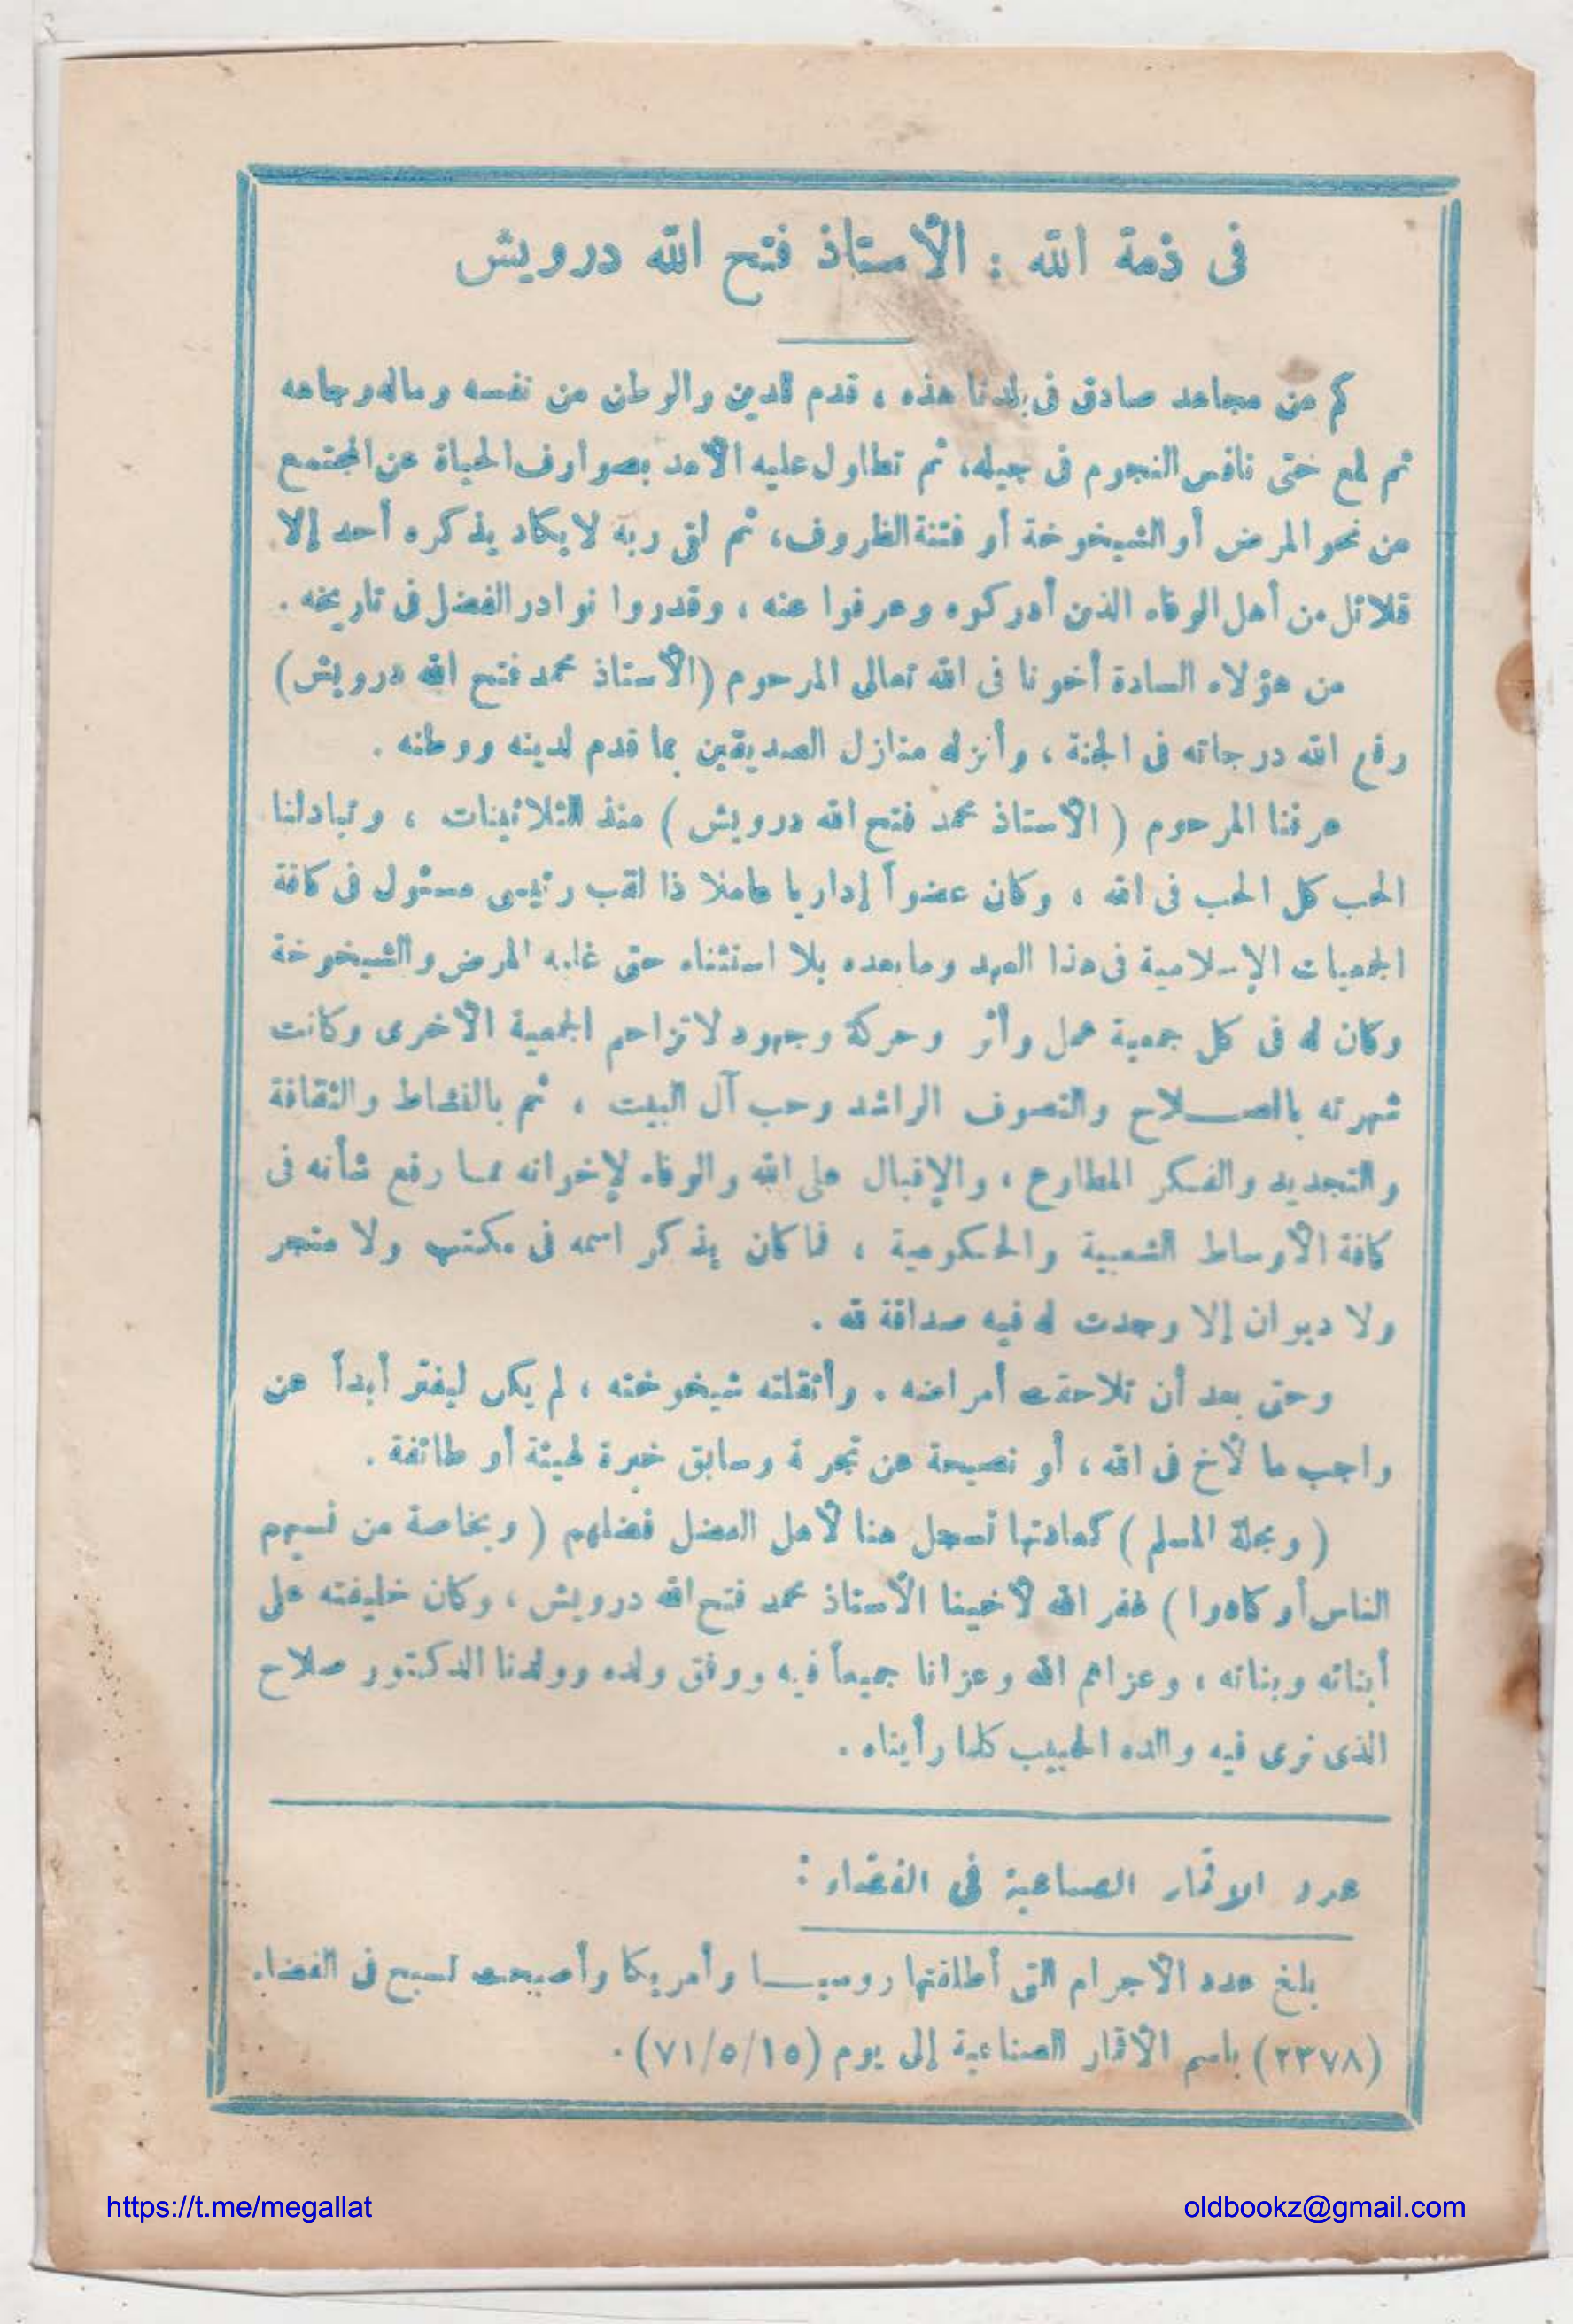 فى ذمة الله : الأستاذ فتح الله درويش
كم من مجاهد صادق فى بلدنا هذه ، قدم للدين والوطن من نفسه وماله وجاهه
ثم لمع حتى نافس النجوم فى جيله، ثم تطاول عليه الأمد بصوارف الحياة عن المجتمع
من نحو المرض أو الشيخوخة أو فتنة الظروف، ثم لقى ربه لا يكاد يذكره أحد إلا
قلائل من أهل الوفاء الذين أدركوه وعرفوا عنه ، وقدروا نوادر الفضل فى تاريخه .
من هؤلاء السادة أخونا فى الله تعالى المرحوم (الأستاذ محمد فتح الله درويش)
رفع الله درجاته فى الجنة ، وأنزله منازل الصديقين بما قدم لدينه ووطنه .
عرفنا المرحوم ( الأستاذ محمد فتح الله درويش ) منذ الثلاثينات ، وتبادلنا
الحب كل الحب فى الله ، وكان عضواً إداريا عاملا ذا لقب رئيسى مسئول فى كافة
الجمعيات الإسلامية فى هذا العهد وما بعده بلا استثناء حتى غلبه المرض والشيخوخة
وكان له فى كل جمعية عمل وأثر وحركة وجهود لا تزاحم الجمعية الأخرى وكانت
شهرته بالصلاح والتصوف الراشد وحب آل البيت ، ثم بالنشاط والثقافة
والتجديد والفكر المطاوع ، والإقبال على الله والوفاء لإخوانه مما رفع شأنه فى
كافة الأوساط الشعبية والحكومية ، فما كان يذكر اسمه فى مكتب ولا متجر
ولا ديوان إلا وجدت له فيه صداقة لله .
وحتى بعد أن تلاحقت أمراضه . وأثقلته شيخوخته ، لم يكن ليفتر أبداً عن
واجب ما لأخ فى الله ، أو نصيحة عن تجربة وسابق خبرة لهيئة أو طائفة .
( ومجلة المسلم ) كعادتها تسجل هنا لأهل الفضل فضلهم ( وبخاصة من نسيهم
الناس أو كادوا ) غفر الله لأخينا الأستاذ محمد فتح الله درويش ، وكان خليفته على
أبنائه وبناته ، وعزاهم الله وعزانا جميعاً فيه ووفق ولده وولدنا الدكتور صلاح
الذى نرى فيه والده الحبيب كلما رأيناه .
عدد الاقمار الصناعية فى الفضاء :
بلغ عدد الأجرام التى أطلقتها روسيا وأمريكا وأصبحت تسبح فى الفضاء
(٢٣٧٨) باسم الأقمار الصناعية إلى يوم (٧١/٥/١٥) .
https://t.me/megallat
oldbookz@gmail.com